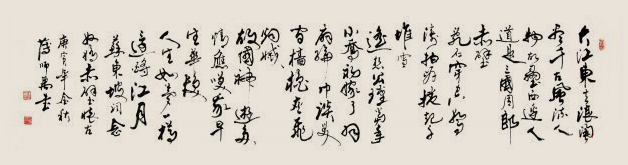 大江東去浪淘
尽千古風流人
物故壘西邊人
道是三國周郎
赤壁
乱石穿空驚
濤拍岸捲起千
堆雪
遥想公瑾當年
小喬初嫁了羽
扇綸巾談笑
間檣櫓灰飛
烟滅
故國神遊多
情應笑我早
生華髮
人生如夢一樽
還酹江月
蘇東坡詞念
奴嬌赤壁懷古
庚寅年金秋